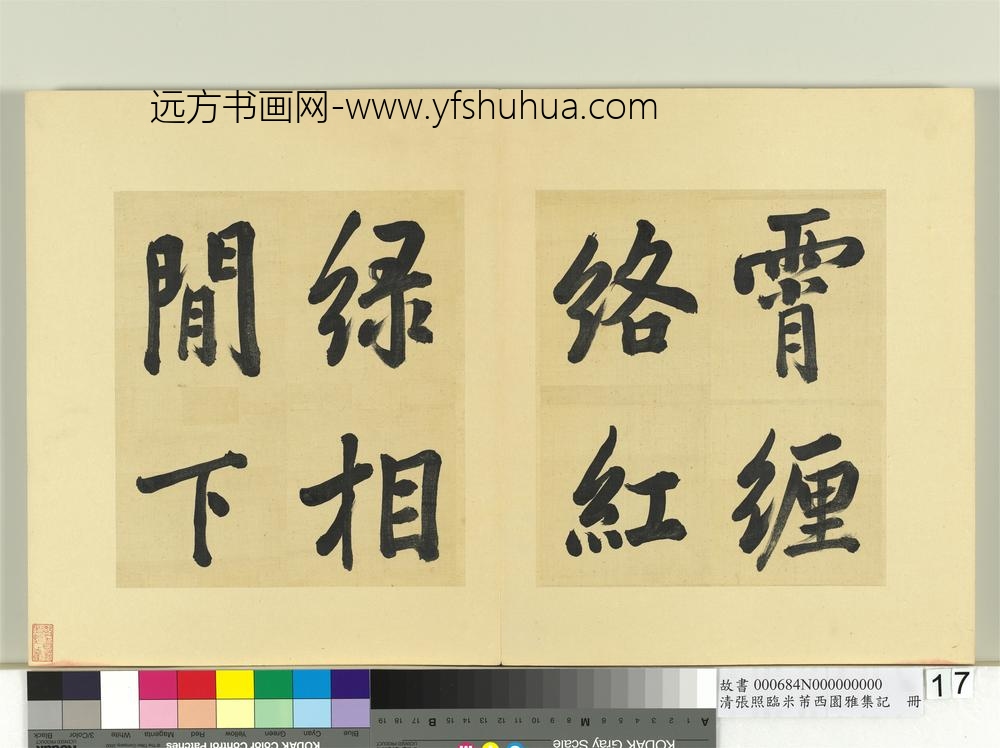 远方书画网-www.yfshuhua.com
霄缠
络紅
绿相
閒下
故書 000684N000000000
清張照臨米芾西園雅集記 冊
17
Black
3/Color
White
Magenta
Red
Yellow
Green
Cyan
Blue
KODAK Color Control Patches
A 1 2 3 4 5 6 M 8 9 10 11 12 13 14 15 B 17 18 19
KODAK Gray Scale